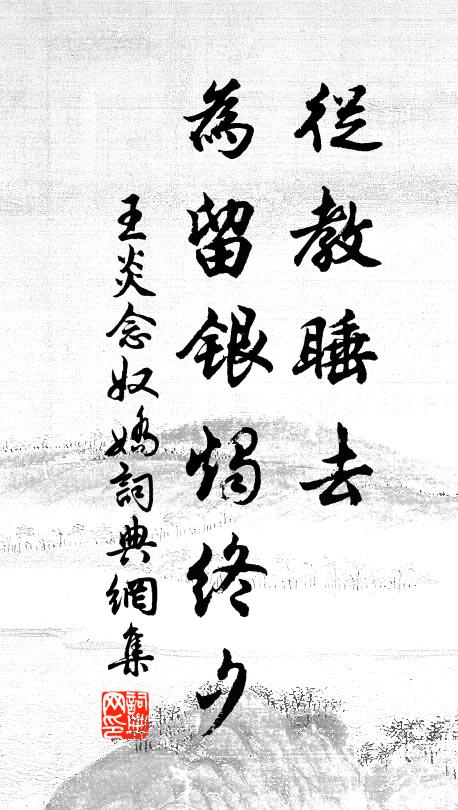 從教睡去
為留銀燭終夕
王炎念奴嬌詞典網集